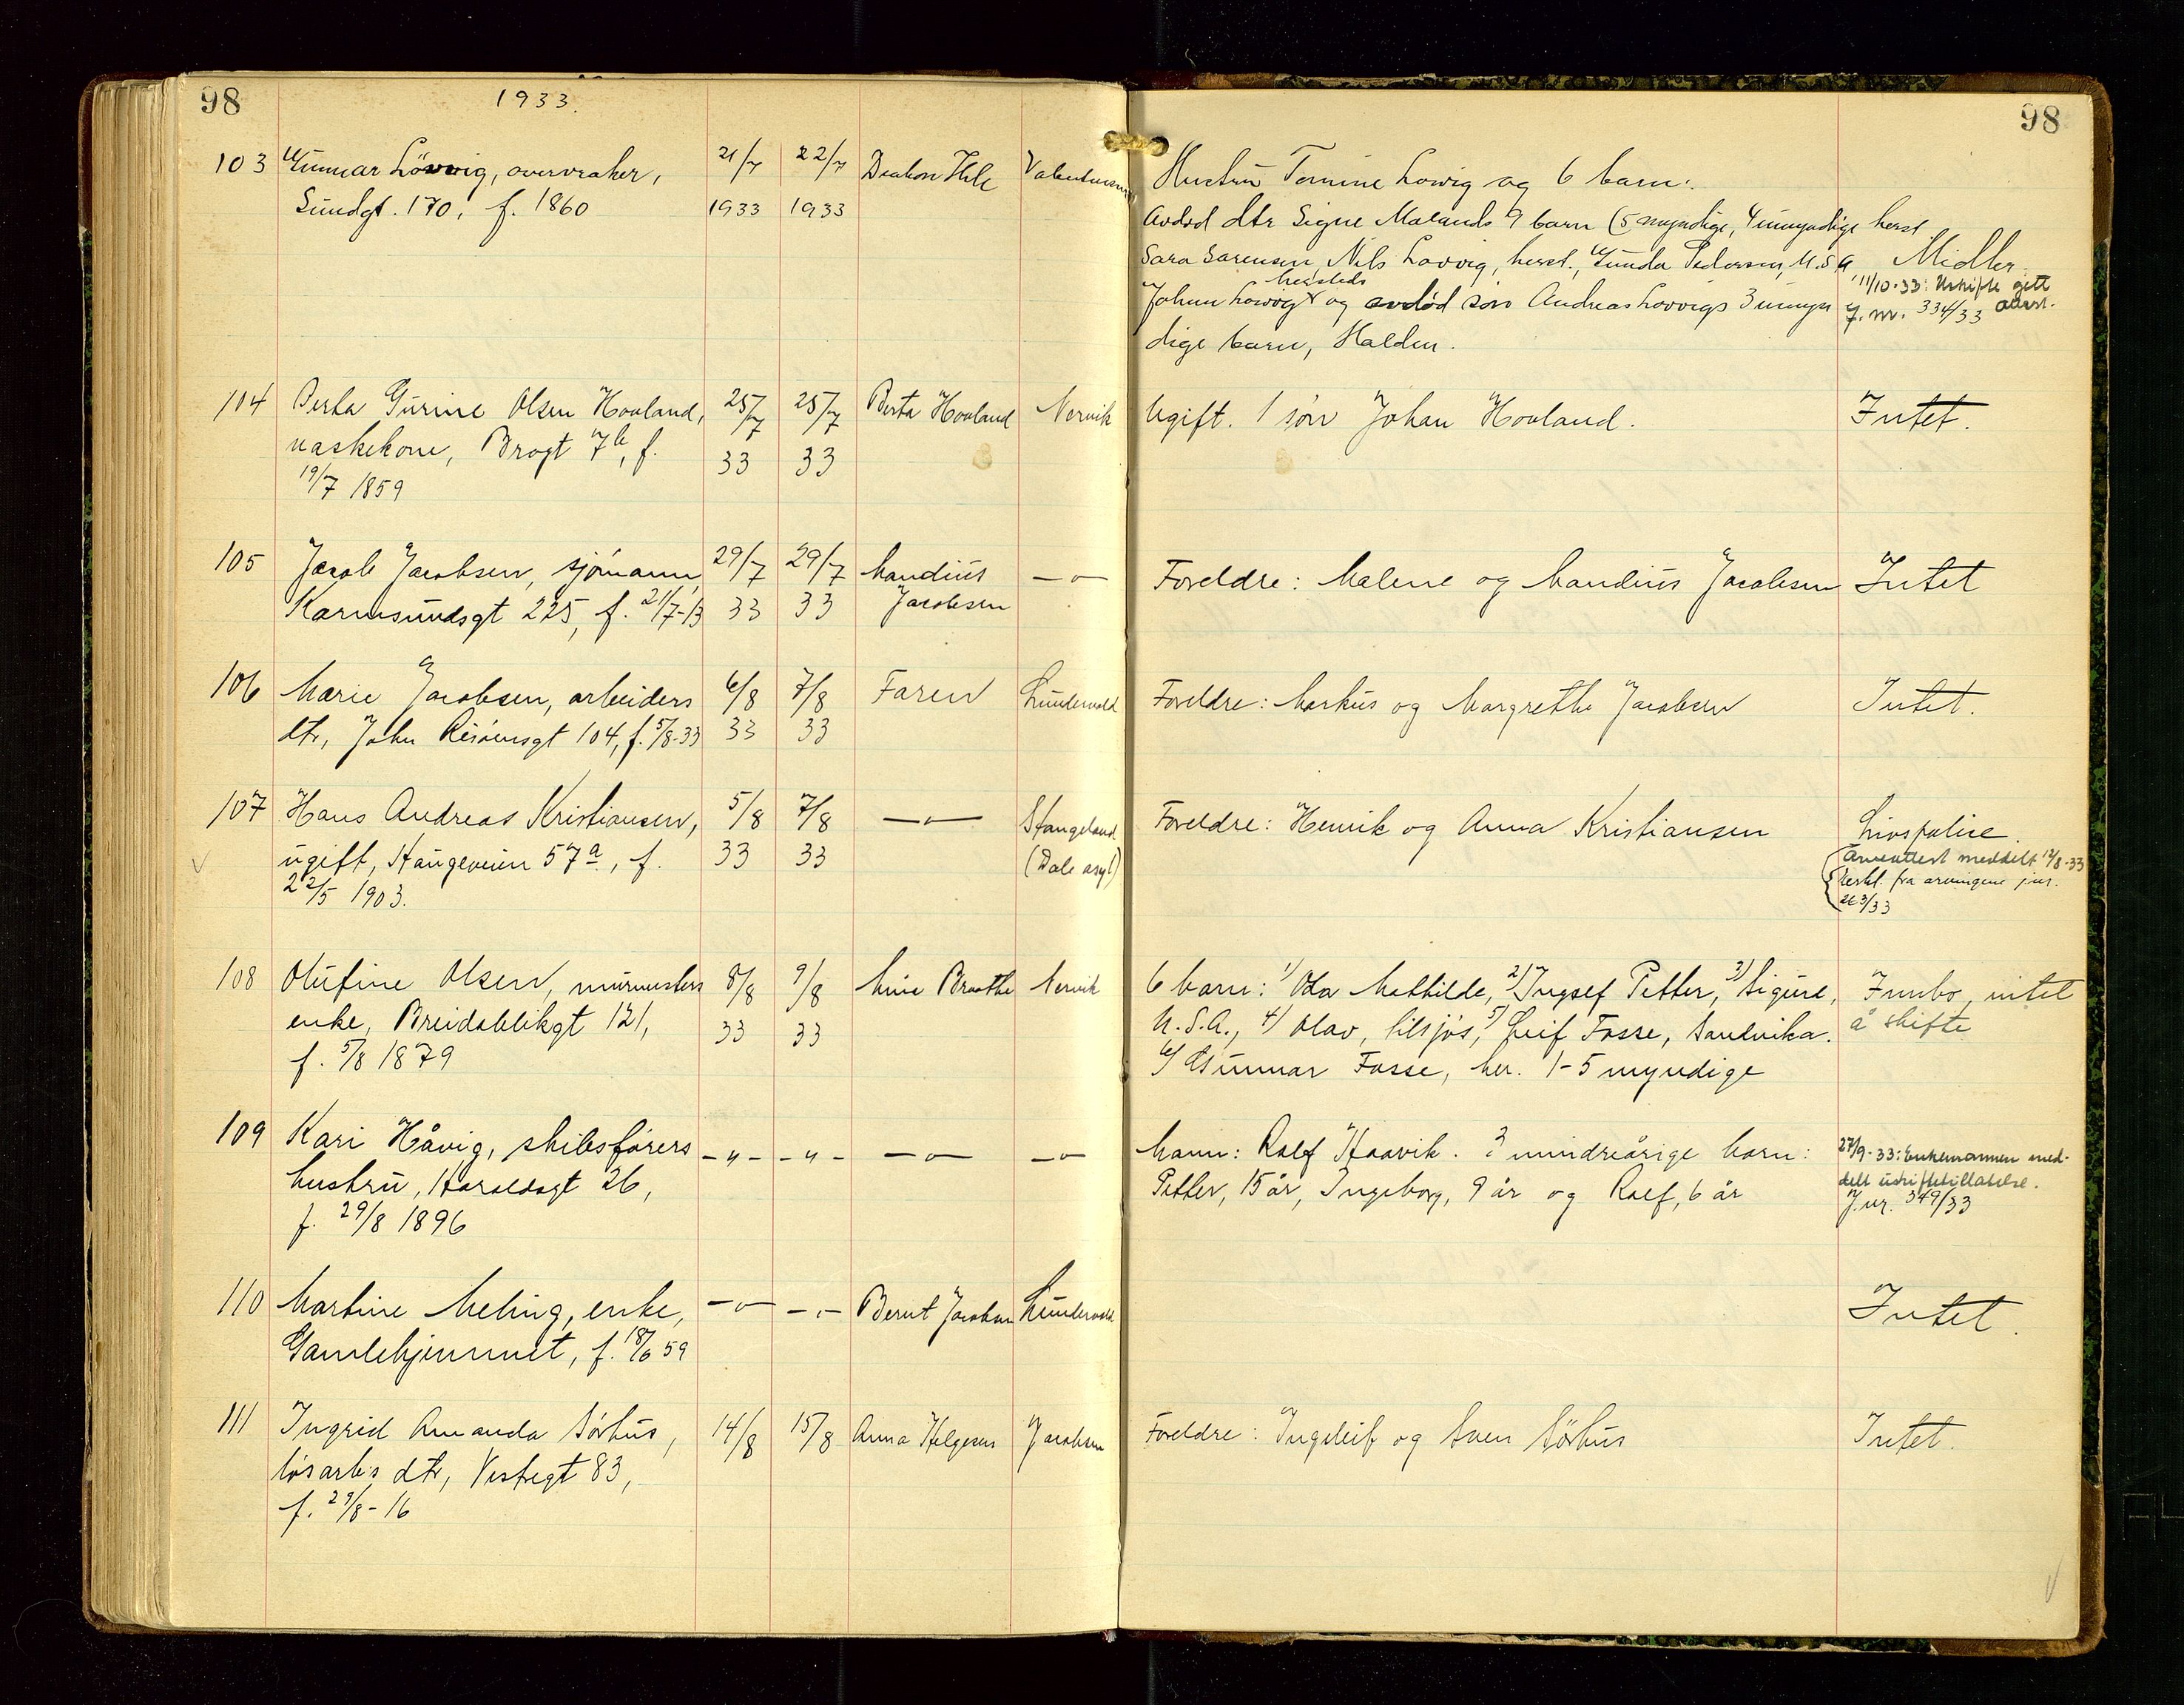 98
1933.
98
103 Gunnar Lövvig, overvraker, 21/7 22/7 Diakon Hile
Sundgt. 170, f. 1860 1933 1933
Hustru Tomine Lovvig og 6 barn:
Avdød dtr Signe Malands 9 barn (5 myndige, 4 umyndige herst
Sara Sørensen, Nils Lovvig, herst., Gunda Pedersen, U.S.A
hersteds
Johan Lovvig og avdød søn Andreas Lovvigs 3 umyn
dige barn, Halden.
Midler.
11/10-33: Uskifte gitt
attest.
J. nr. 334/33
104 Berta Gurine Olsen Hovland, 25/7 25/7 Berta Hovland Nervik Ugift. 1 sön Johan Hovland. Intet.
vaskekone, Brogt 7b, f. 33 33
19/7 1859
105 Jacob Jacobsen, sjömann, 29/7 29/7 Mandius —"— Foreldre: Malene og Mandius Jacobsen Intet
Karmsundsgt 225, f. 21/7-13 33 33 Jacobsen
106 Marie Jacobsen, arbeiders 6/8 7/8 Faren Lundevold Foreldre: Markus og Margrethe Jacobsen Intet.
dtr, John Risöensgt 104, f. 5/8-33 33 33
107 Hans Andreas Kristiansen, 5/8 7/8 —"— Stangeland Foreldre: Henrik og Anna Kristiansen Livspolise.
ugift, Haugeveien 57a, f. 33 33 (Dale asyl)
22/5 1903.
Arveattest meddelt 12/8-33
Erkl. fra arvingene jnr.
263/33
108 Olufine Olsen, murmesters 8/8 9/8 Mina Braathe Nervik 6 barn: 1) Oda Mathilde, 2) Ingsef Petter, 3) Sigurd, Innbo, intet
enke, Breidablikgt 121, 33 33 U.S.A., 4) Olav, tilsjös, 5) Leif Fosse, Sandvika. å skifte
f. 5/8 1879 6) Gunnar Fosse, her. 1-5 myndige
109 Kari Håvig, skibsförers -"- -"- —"— —"— Mann: Rolf Haavik. 3 mindreårige barn:
hustru, Haraldsgt 26, Petter, 15 år, Ingeborg, 9 år og Rolf, 6 år
f. 29/8 1896
27/9-33: Enkemannen med-
delt uskiftetillatelse.
J.nr. 349/33
110 Martine Meling, enke, —"— -"- Bernt Jacobsen Lundevold Intet.
Gamlehjemmet, f. 18/6 59
111 Ingrid Amanda Sörhus, 14/8 15/8 Anna Helgesen Jacobsen Foreldre: Ingeleif og Sven Sörhus Intet.
lösarb's dtr, Vestregt 83,
f. 29/8-16